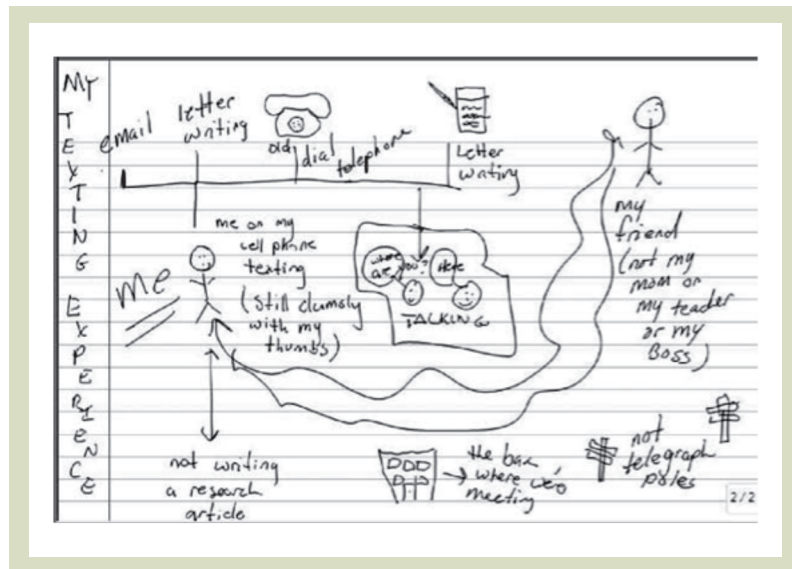 MY TEXTING EXPERIENCE
email
letter
writing
old dial telephone
Letter
writing
me on my
cell phone
texting
(still clumsy
with my
thumbs)
me
where
are you?
Here
TALKING
my
friend
(not my
mom or
my teacher
or my
Boss)
not writing
a research
article
the bar
where we's
meeting
not
telegraph
poles
2/2